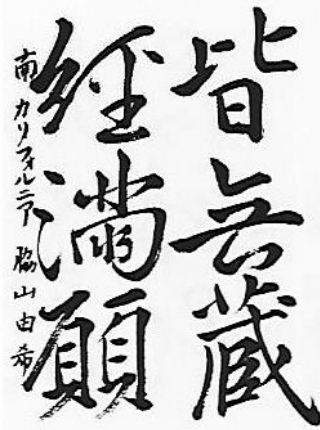 皆無蔵
經満願
南カリフォルニア 脇山由希